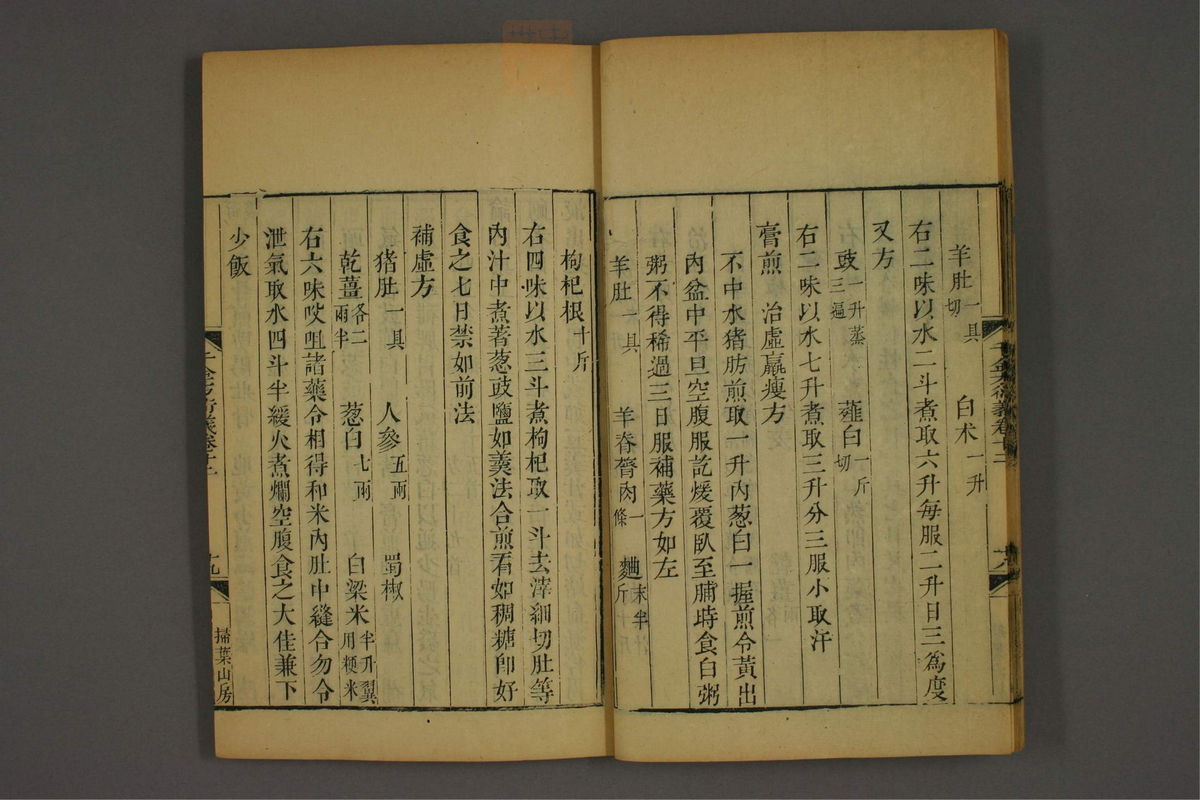 羊肚一具切 白术一升
右二味以水二斗煮取六升每服二升日三爲度
又方
豉一升蒸三遍 薤白一斤切
右二味以水七升煮取三升分三服小取汗
膏煎 治虛羸瘦方
不中水猪肪煎取一升內葱白一握煎令黃出
內盆中平旦空腹服訖煖覆臥至晡時食白粥
粥不得稀過三日服補藥方如左
羊肚一具 羊脊膂肉一條 麯末半斤
枸杞根十斤
右四味以水三斗煮枸杞取一斗去滓細切肚等
內汁中煮著葱豉鹽如羹法合煎看如稠糖卽好
食之七日禁如前法
補虛方
猪肚一具 人參五兩 蜀椒
乾薑各二兩半 葱白七兩 白粱米半升翼用粳米
右六味㕮咀諸藥令相得和米內肚中縫合勿令
泄氣取水四斗半緩火煮爛空腹食之大佳兼下
少飯
千金方衍義卷十二 十九 掃葉山房